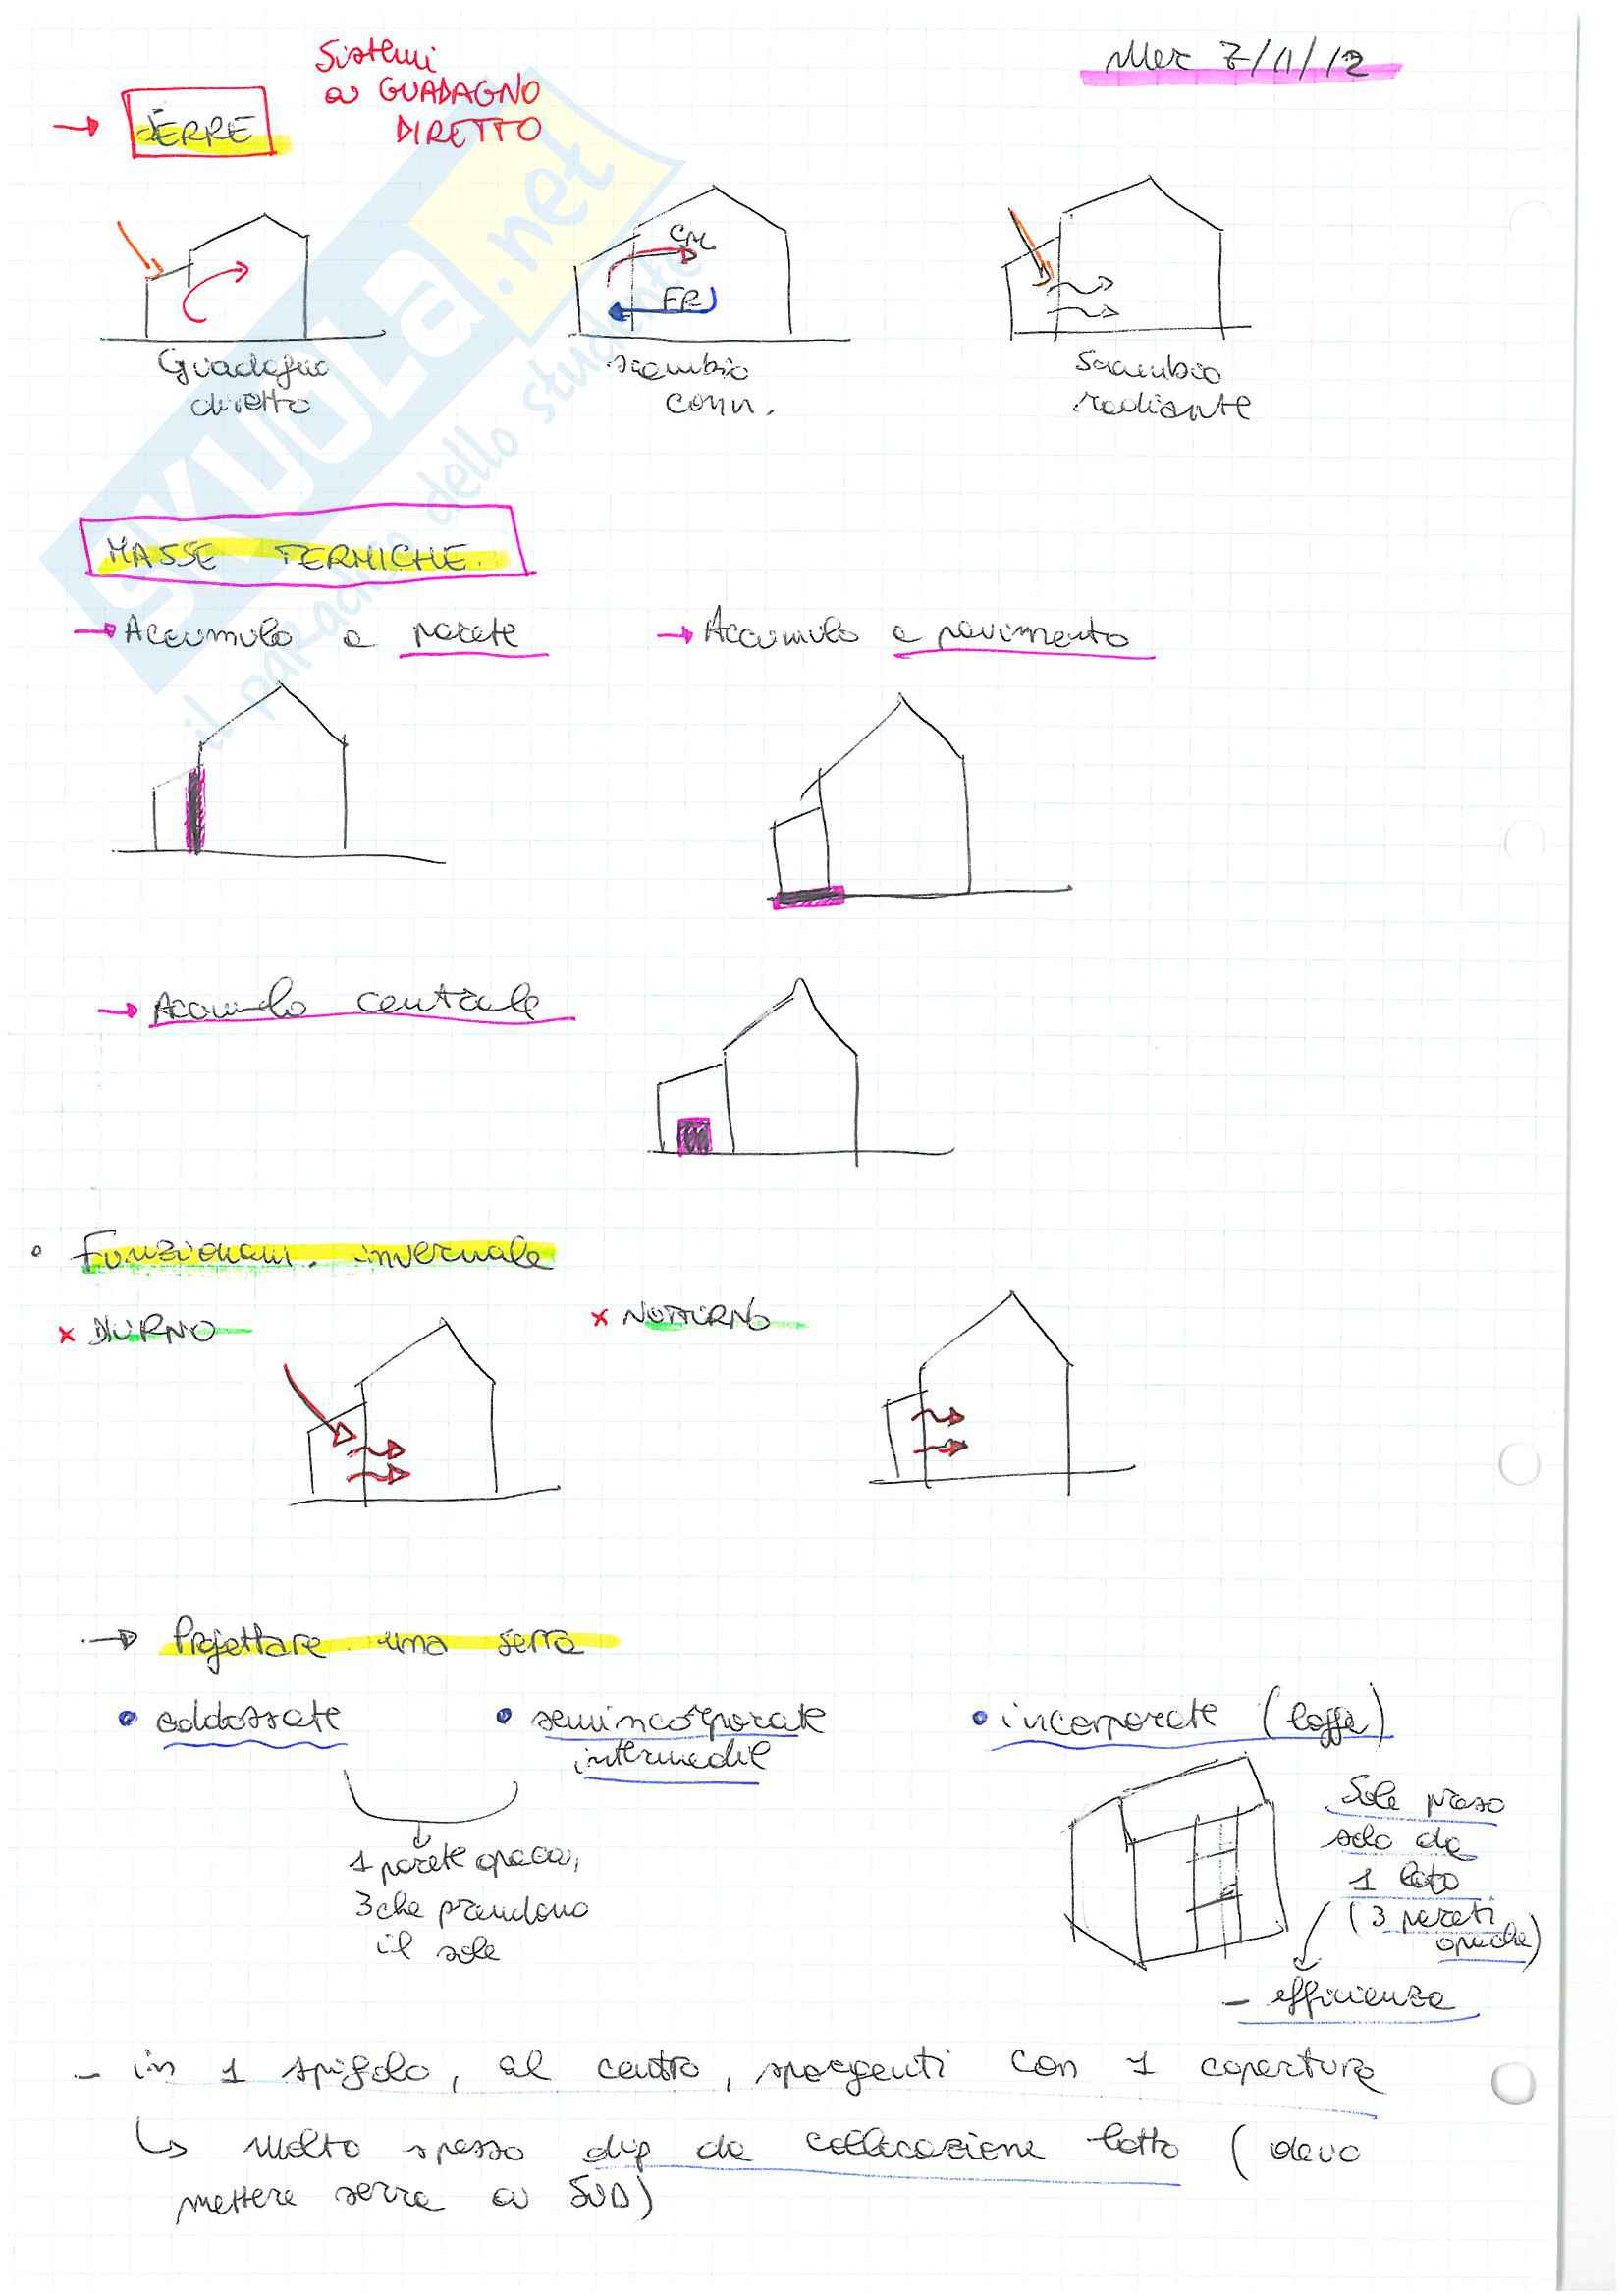 Mer 7/11/12
Sistemi
a GUADAGNO
DIRETTO
→ SERRE
CAL
FR
Guadagno
diretto
scambio
conv.
Scambio
radiante
MASSE TERMICHE
→ Accumulo a parete
→ Accumulo a pavimento
→ Accumulo centrale
• Funzionam. invernale
x DIURNO
x NOTTURNO
→ Progettare una serra
• addossate
• semincorporate
intermedie
• incorporate (logge)
1 parete opaca,
3 che prendono
il sole
Sole preso
solo da
1 lato
(3 pareti
opache)
- efficienza
- in 1 spigolo, al centro, sporgenti con 1 copertura
↳ molto spesso dip da collocazione lotto (devo
mettere serra a SUD)
SKUOLa.net
il paradiso dello studente